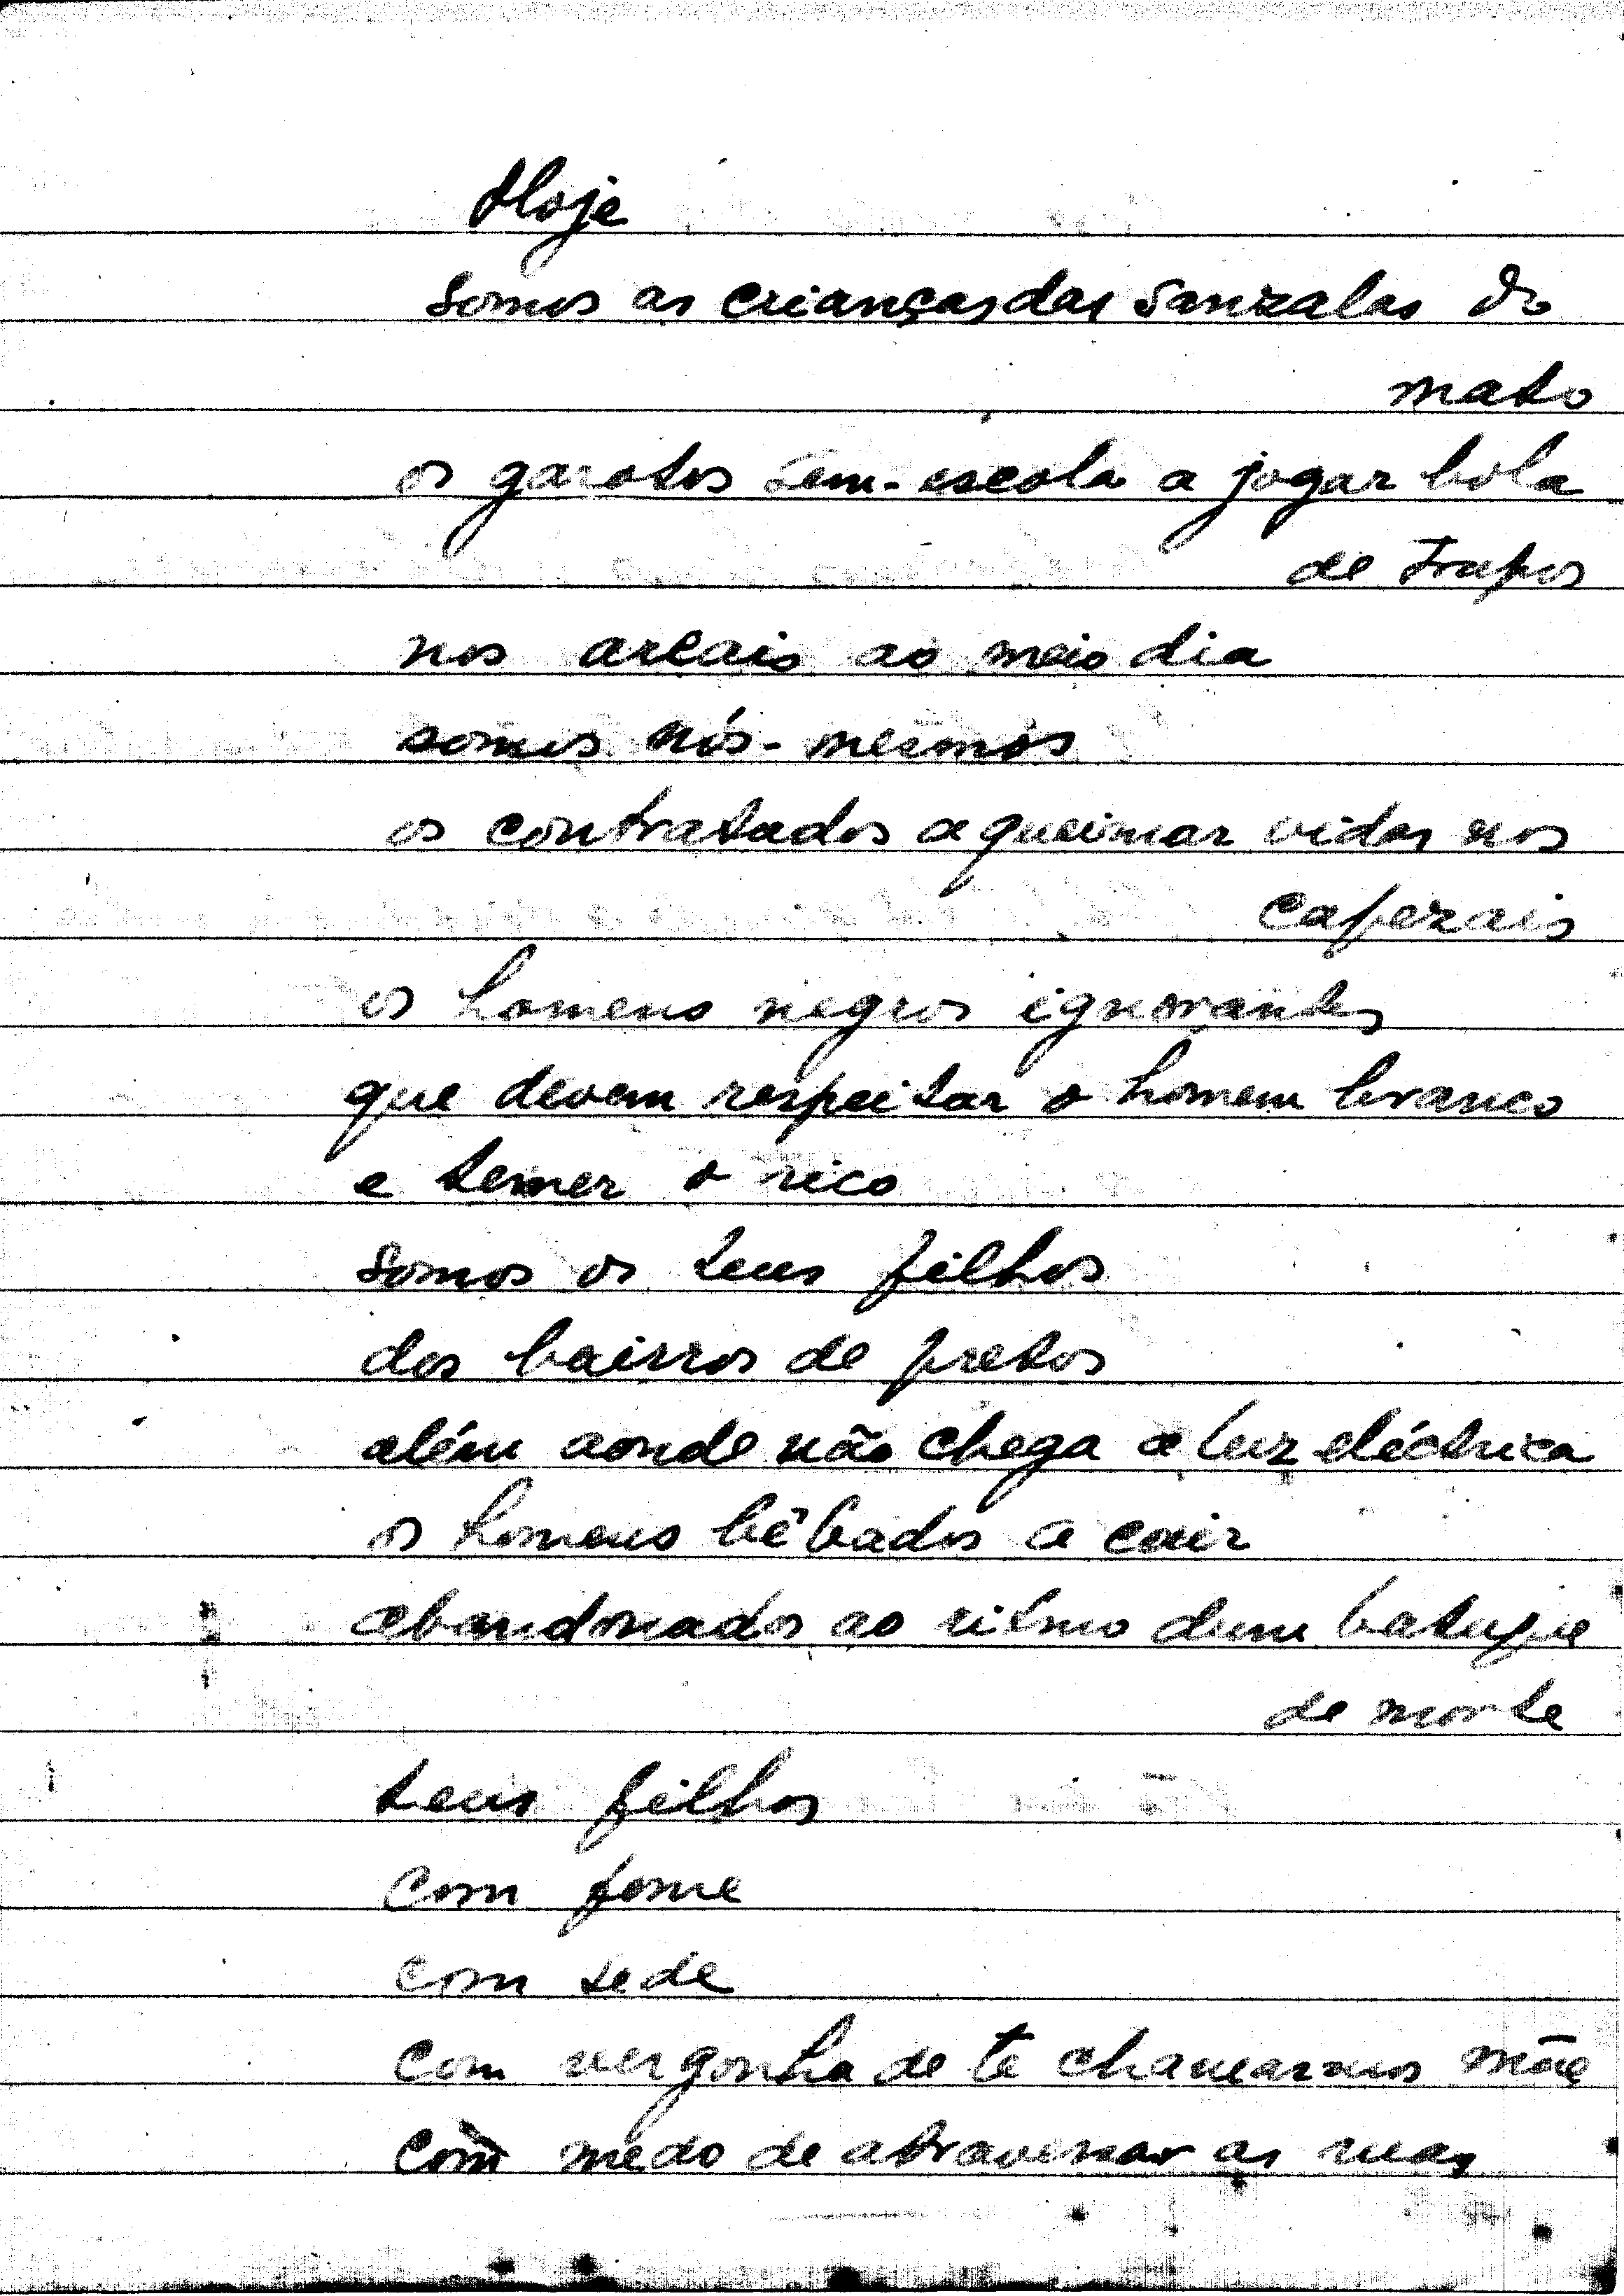 Hoje
somos as crianças das sanzalas do
mato
os garotos sem-escola a jogar bola
de trapos
nos areais ao meio dia
somos nós-mesmos
os contratados a queimar vidas nos
cafezais
os homens negros ignorantes
que devem respeitar o homem branco
e temer o rico
somos os teus filhos
dos bairros de pretos
além aonde não chega a luz eléctrica
os homens bêbados a cair
abandonados ao ritmo dum batuque
de morte
teus filhos
com fome
com sede
com vergonha de te chamarmos mãe
com medo de atravessar as ruas